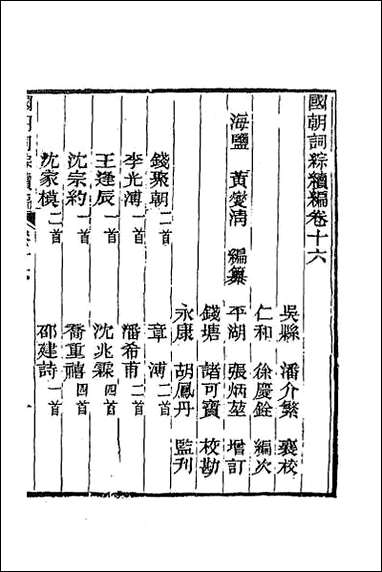 國朝詞綜續編卷十六
吳縣 潘介繁 襄校
仁和 徐慶銓 編次
海鹽 黃燮清 編纂 平湖 張炳堃 增訂
錢塘 諸可寶 校勘
永康 胡鳳丹 監刊
錢聚朝二首 章溥二首
李光溥一首 潘希甫二首
王逢辰一首 沈兆霖四首
沈宗約一首 喬重禧四首
沈家模二首 邵建詩一首